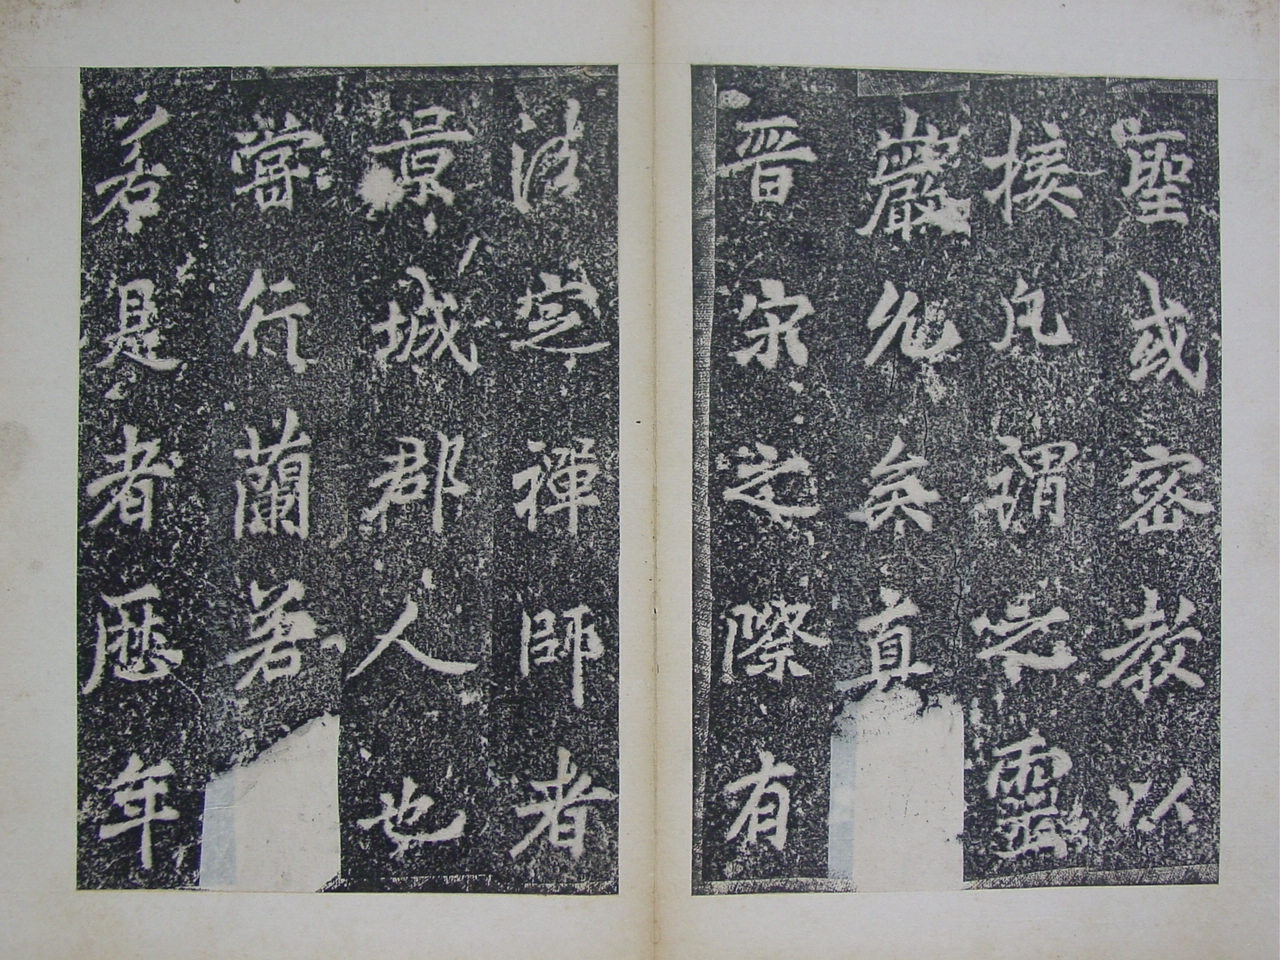 聖或密教以
接凡謂之靈
巖允矣真
晉宋之際有
法定禪師者
景城郡人也
嘗行蘭若
若是者歷年